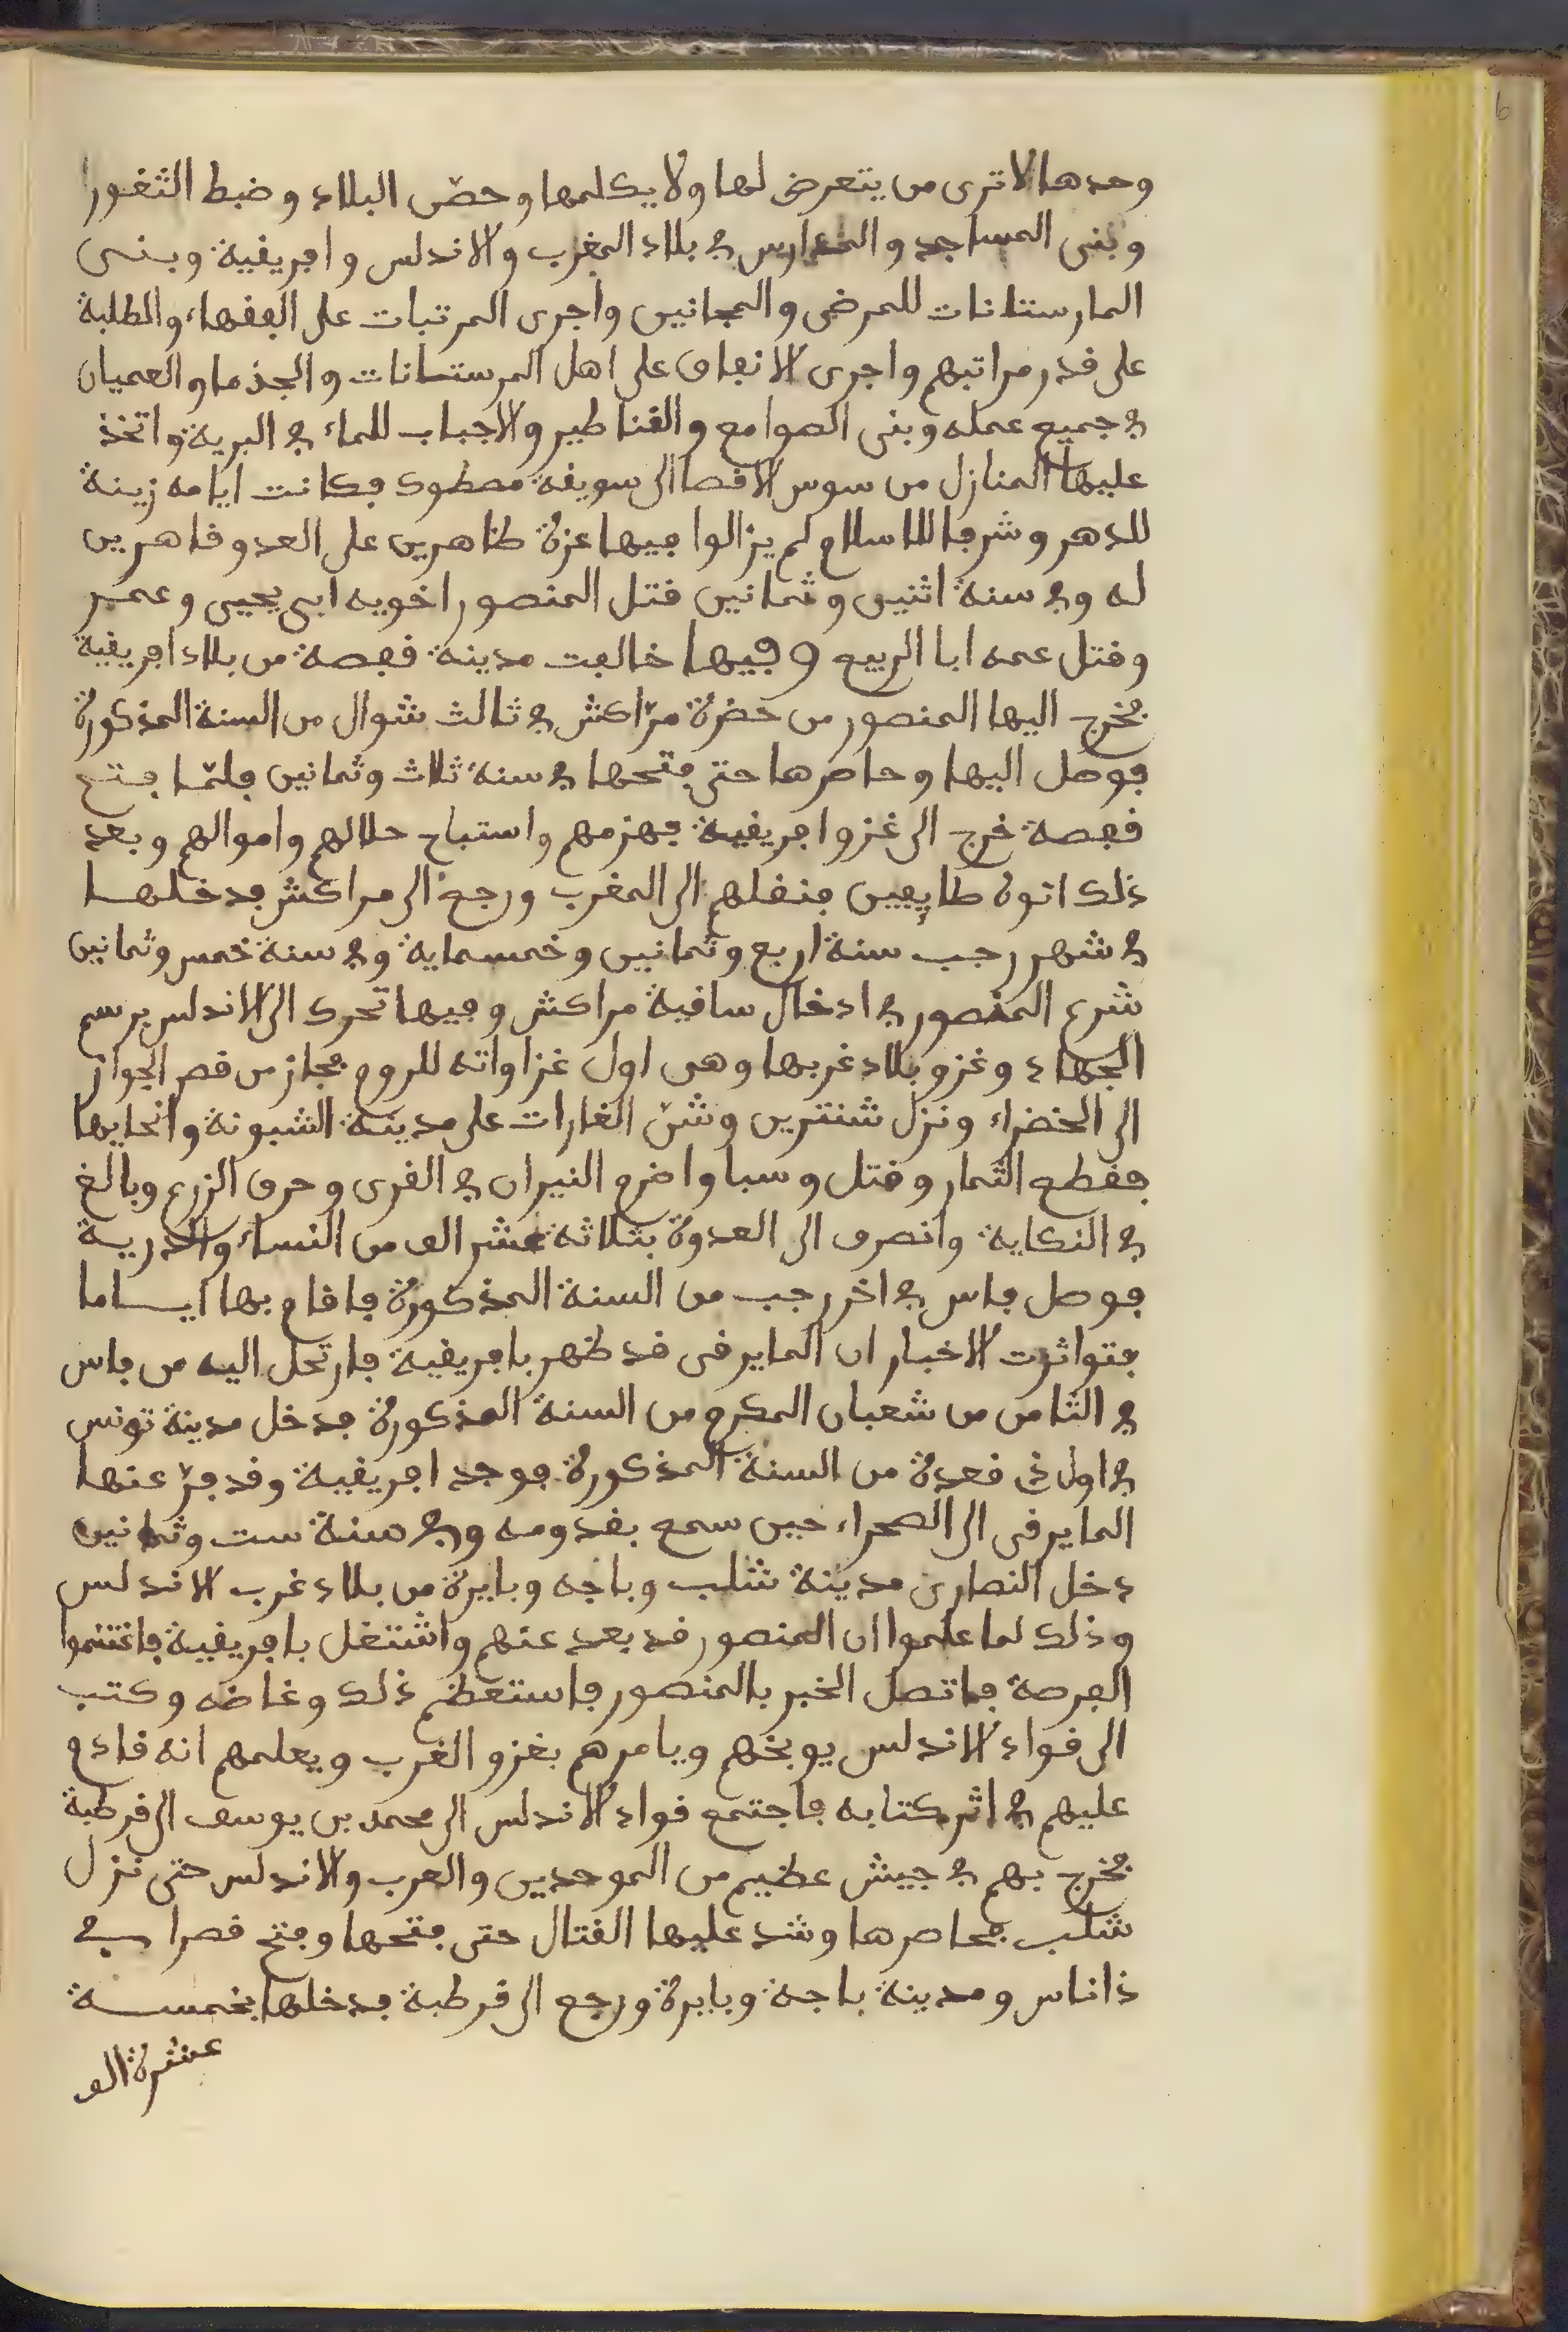 وحدها لا ترى من يتعرض لها ولا يكلمها وحصّن البلاد وضبط الثغور
وبنى المساجد والمدارس في بلاد المغرب والاندلس وافريقية وبنى
المارستانات للمرضى والمجانين واجرى المرتبات على الفقهاء والطلبة
على قدر مراتبهم واجرى الانفاق على اهل المرستانات والجذما والعميان
في جميع عمله وبنى الصوامع والقناطير والاجباب للماء في البرية واتخذ
عليها المنازل من سوس الاقصا الى سويقة مصكوك فكانت ايامه زينة
للدهر وشرفا للاسلام لم يزالوا فيها عزة ظاهرين على العدو قاهرين
له وفي سنة اثنين وثمانين قتل المنصور اخويه ابى يحيى وعمر
وقتل عمه ابا الربيع وفيها خالفت مدينة قفصة من بلاد افريقية
فخرج اليها المنصور من حضرة مرّاكش في ثالث شوال من السنة المذكورة
فوصل اليها وحاصرها حتى فتحها في سنة ثلاث وثمانين فلمّا فتح
قفصة خرج الى غزو افريقية فهزمهم واستباح حلالهم واموالهم وبعد
ذلك اتوه طايعين فنقلهم الى المغرب ورجع الى مراكش فدخلها
في شهر رجب سنة اربع وثمانين وخمسماية وفي سنة خمس وثمانين
شرع المنصور في ادخال ساقية مراكش وفيها تحرك الى الاندلس برسم
الجهاد وغزو بلاد غربها وهى اول غزاواته للروم فجاز من قصر الجواز
الى الخضراء ونزل شنترين وشنّ الغارات على مدينة الشبونة وانحايها
فقطع الثمار وقتل وسبا واضرم النيران في القرى وحرق الزرع وبالغ
في النكاية وانصرف الى العدوة بثلاثة عشر الف من النساء والذرية
فوصل فاس في اخر رجب من السنة المذكورة فاقام بها اياما
فتواثرت الاخبار ان المايرقى قد ظهر بافريقية فارتحل اليه من فاس
في الثامن من شعبان المكرم من السنة المذكورة فدخل مدينة تونس
في اول ذي قعدة من السنة المذكورة فوجد افريقية وقد فرّ عنها
المايرقى الى الصحراء حين سمع بقدومه وفي سنة ست وثمانين
دخل النصارى مدينة شلب وباجه وبايرة من بلاد غرب الاندلس
وذلك لما علموا ان المنصور قد بعد عنهم واشتغل بافريقية فاغتنموا
الفرصة فاتصل الخبر بالمنصور فاستعظم ذلك وغاضه وكتب
الى قواد الاندلس يوبخهم ويامرهم بغزو الغرب ويعلمهم انه قادم
عليهم في اثر كتابه فاجتمع قواد الاندلس الى محمد بن يوسف الى قرطبة
فخرج بهم في جيش عظيم من الموحدين والعرب والاندلس حتى نزل
شلب فحاصرها وشد عليها القتال حتى فتحها وفتح قصر ابي
ذاناس ومدينة باجة وبايرة ورجع الى قرطبة فدخلها بخمسة
عشرة الف